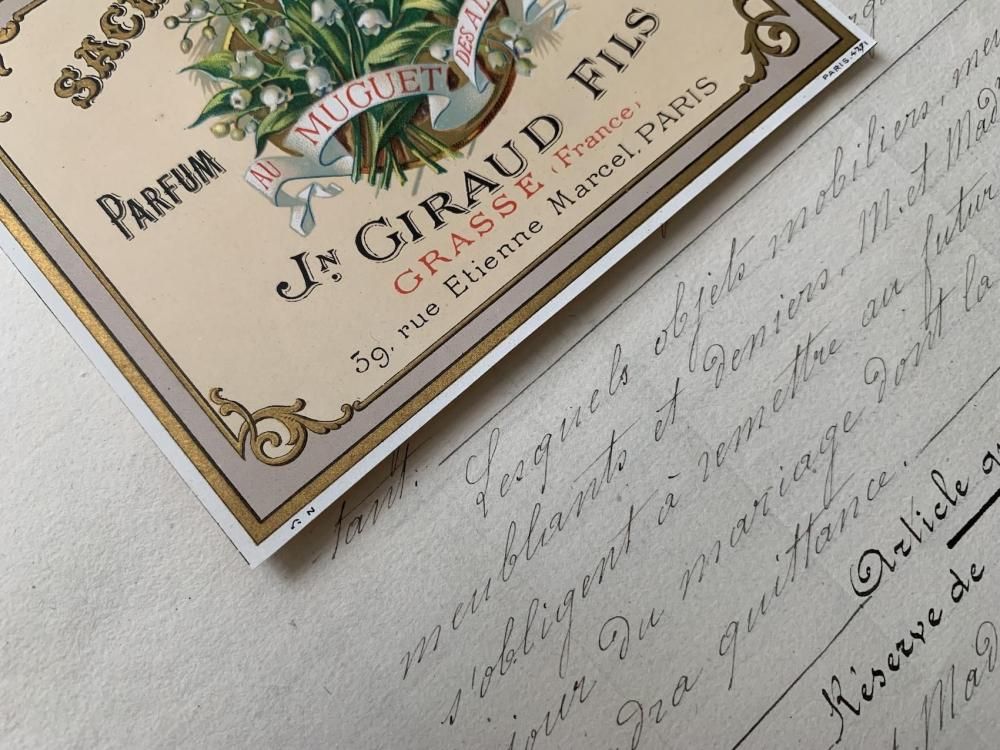 SACH
AU MUGUET DES AL
PARFUM
JN GIRAUD FILS
GRASSE (France)
39, rue Etienne Marcel, PARIS
tant.
Lesquels objets mobiliers, meu
meublants et deniers, M. et Mad
s'obligent à remettre au futur
jour du mariage dont la
dra quittance.
Article qu
Réserve de
Mad